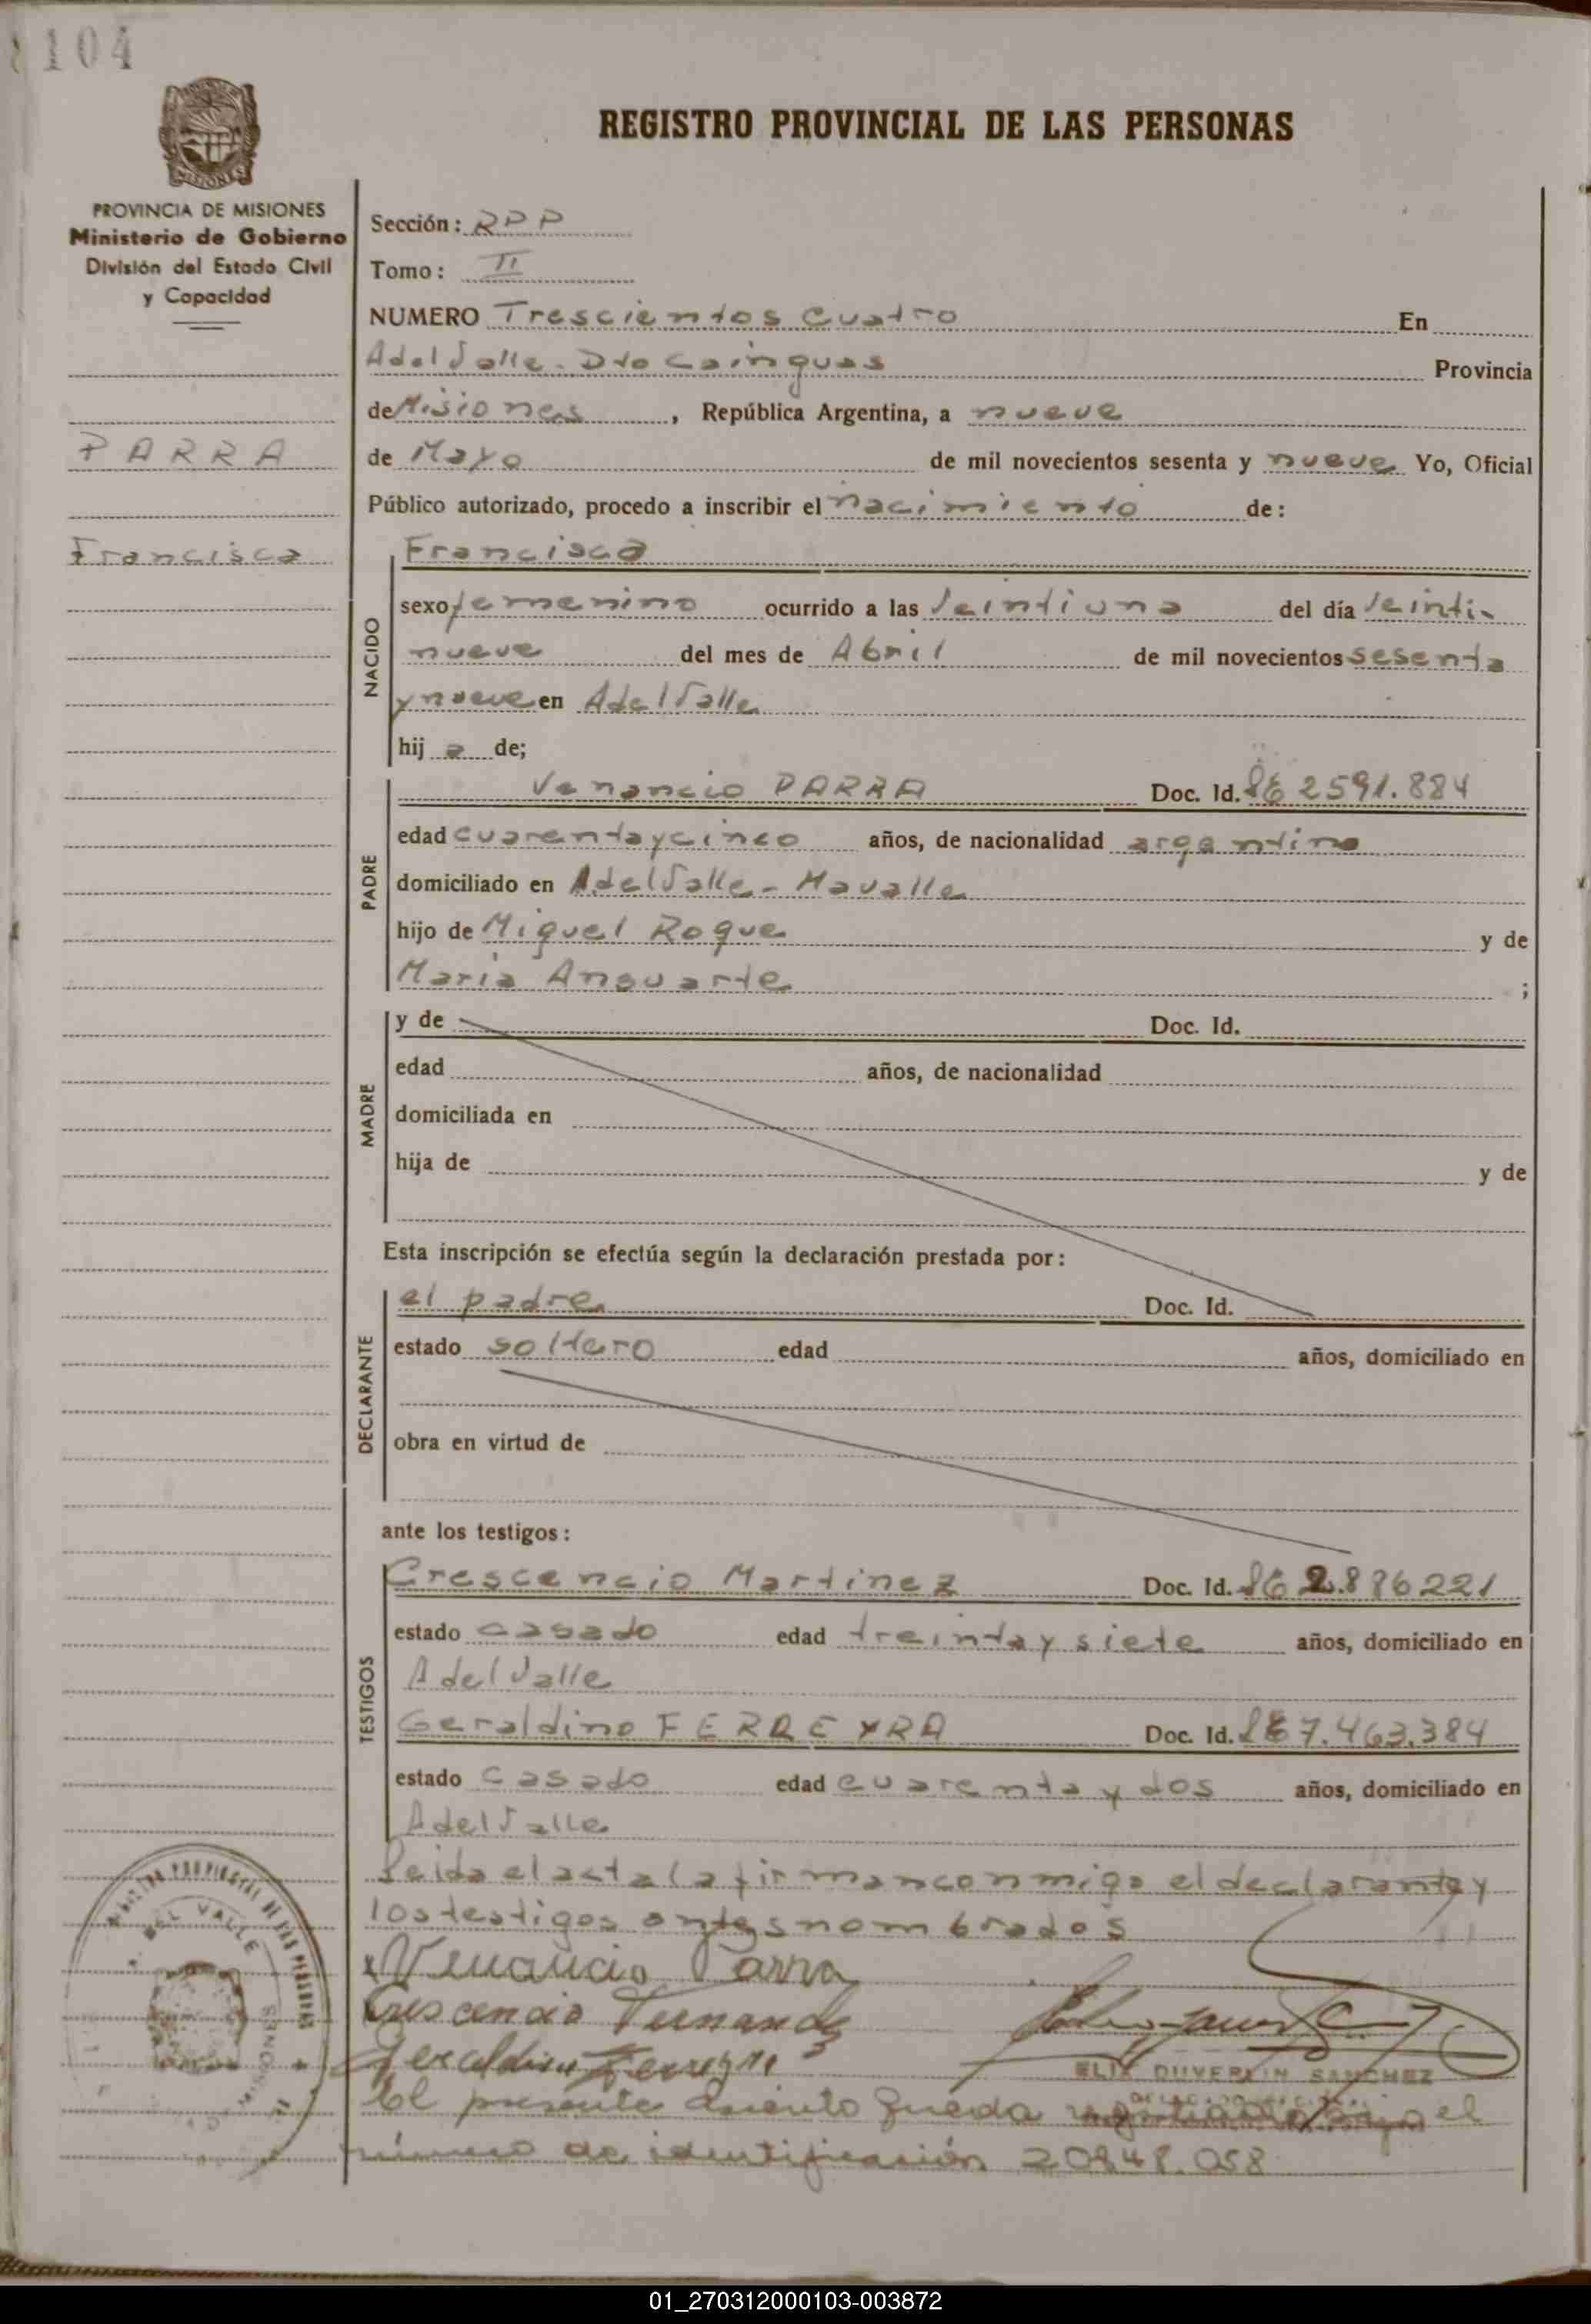 104
REGISTRO PROVINCIAL DE LAS PERSONAS
MISIONES
PROVINCIA DE MISIONES
Ministerio de Gobierno
División del Estado Civil
y Capacidad
PARRA
Francisca
Sección: RPP
Tomo: II
NUMERO Trescientos Cuatro En
A del Valle - Dto Cainguas Provincia
de Misiones, República Argentina, a nueve
de Mayo de mil novecientos sesenta y nueve Yo, Oficial
Público autorizado, procedo a inscribir el nacimiento de:
NACIDO
Francisca
sexo femenino ocurrido a las Veintiuna del día Veinti-
nueve del mes de Abril de mil novecientos sesenta
y nueve en A del Valle
hija de;
PADRE
Venancio PARRA Doc. Id. 2591.884
edad cuarenta y cinco años, de nacionalidad argentino
domiciliado en A del Valle - Mavalle
hijo de Miguel Roque y de
Maria Anguarte ;
MADRE
y de Doc. Id.
edad años, de nacionalidad
domiciliada en
hija de y de
Esta inscripción se efectúa según la declaración prestada por:
DECLARANTE
el padre Doc. Id.
estado soltero edad años, domiciliado en
obra en virtud de
ante los testigos:
TESTIGOS
Crescencio Martinez Doc. Id. 2.886221
estado casado edad treinta y siete años, domiciliado en
A del Valle
Geraldino FERREYRA Doc. Id. 7.463.384
estado casado edad cuarenta y dos años, domiciliado en
A del Valle
Leida el acta la firman conmigo el declarante y
los testigos antes nombrados
Venancio Parra
Crescencio Fernandez
Geraldino Ferreyra
SANCHEZ
DEL VALLE
MISIONES
El presente asiento queda el
número de identificación 20.848.058
01_270312000103-003872